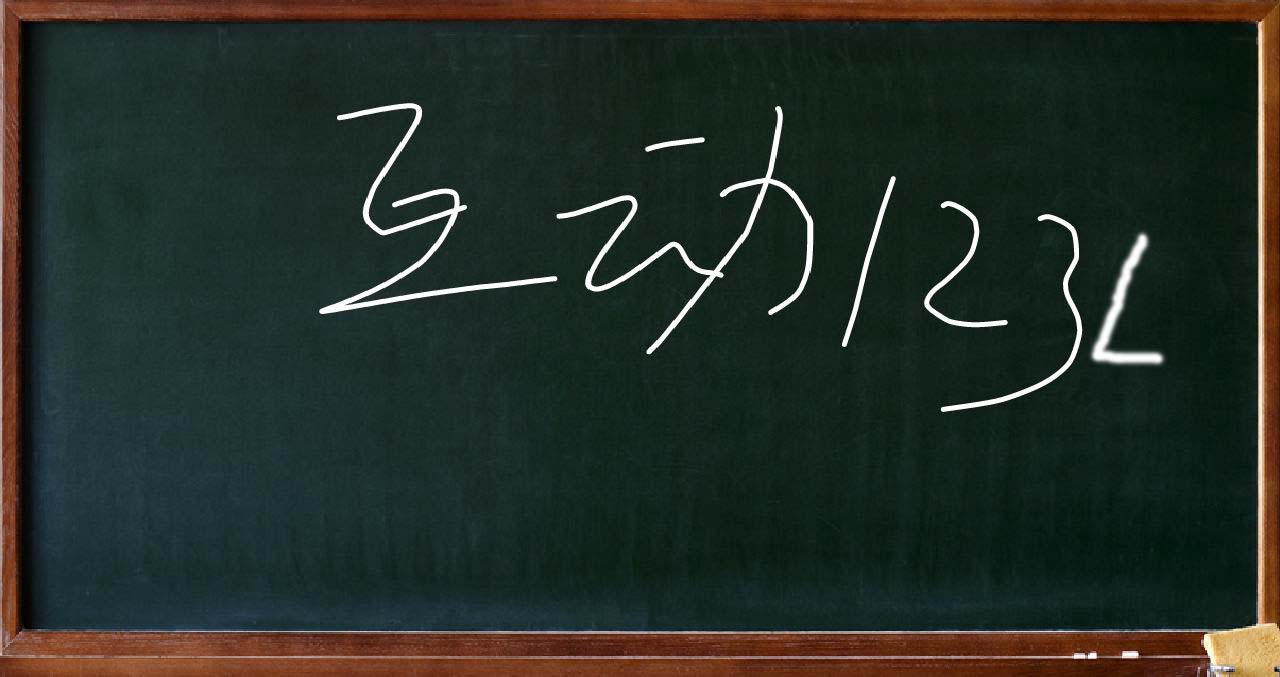 互动123L